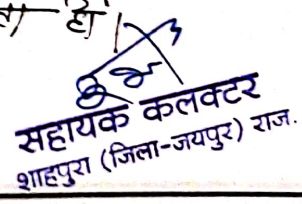 हो।
सहायक कलक्टर
शाहपुरा (जिला-जयपुर) राज.